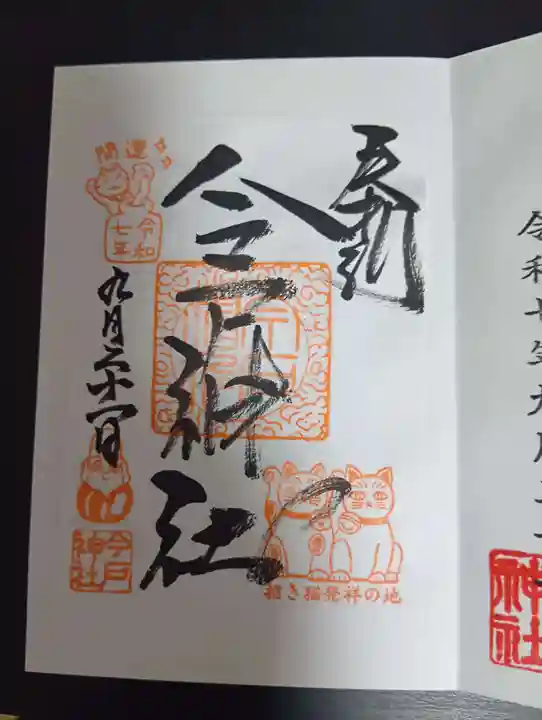 令和七年九月二
神社
奉拝
今戸神社
招き猫発祥の地
開運
令和
七年
九月二十一日
今戸
神社